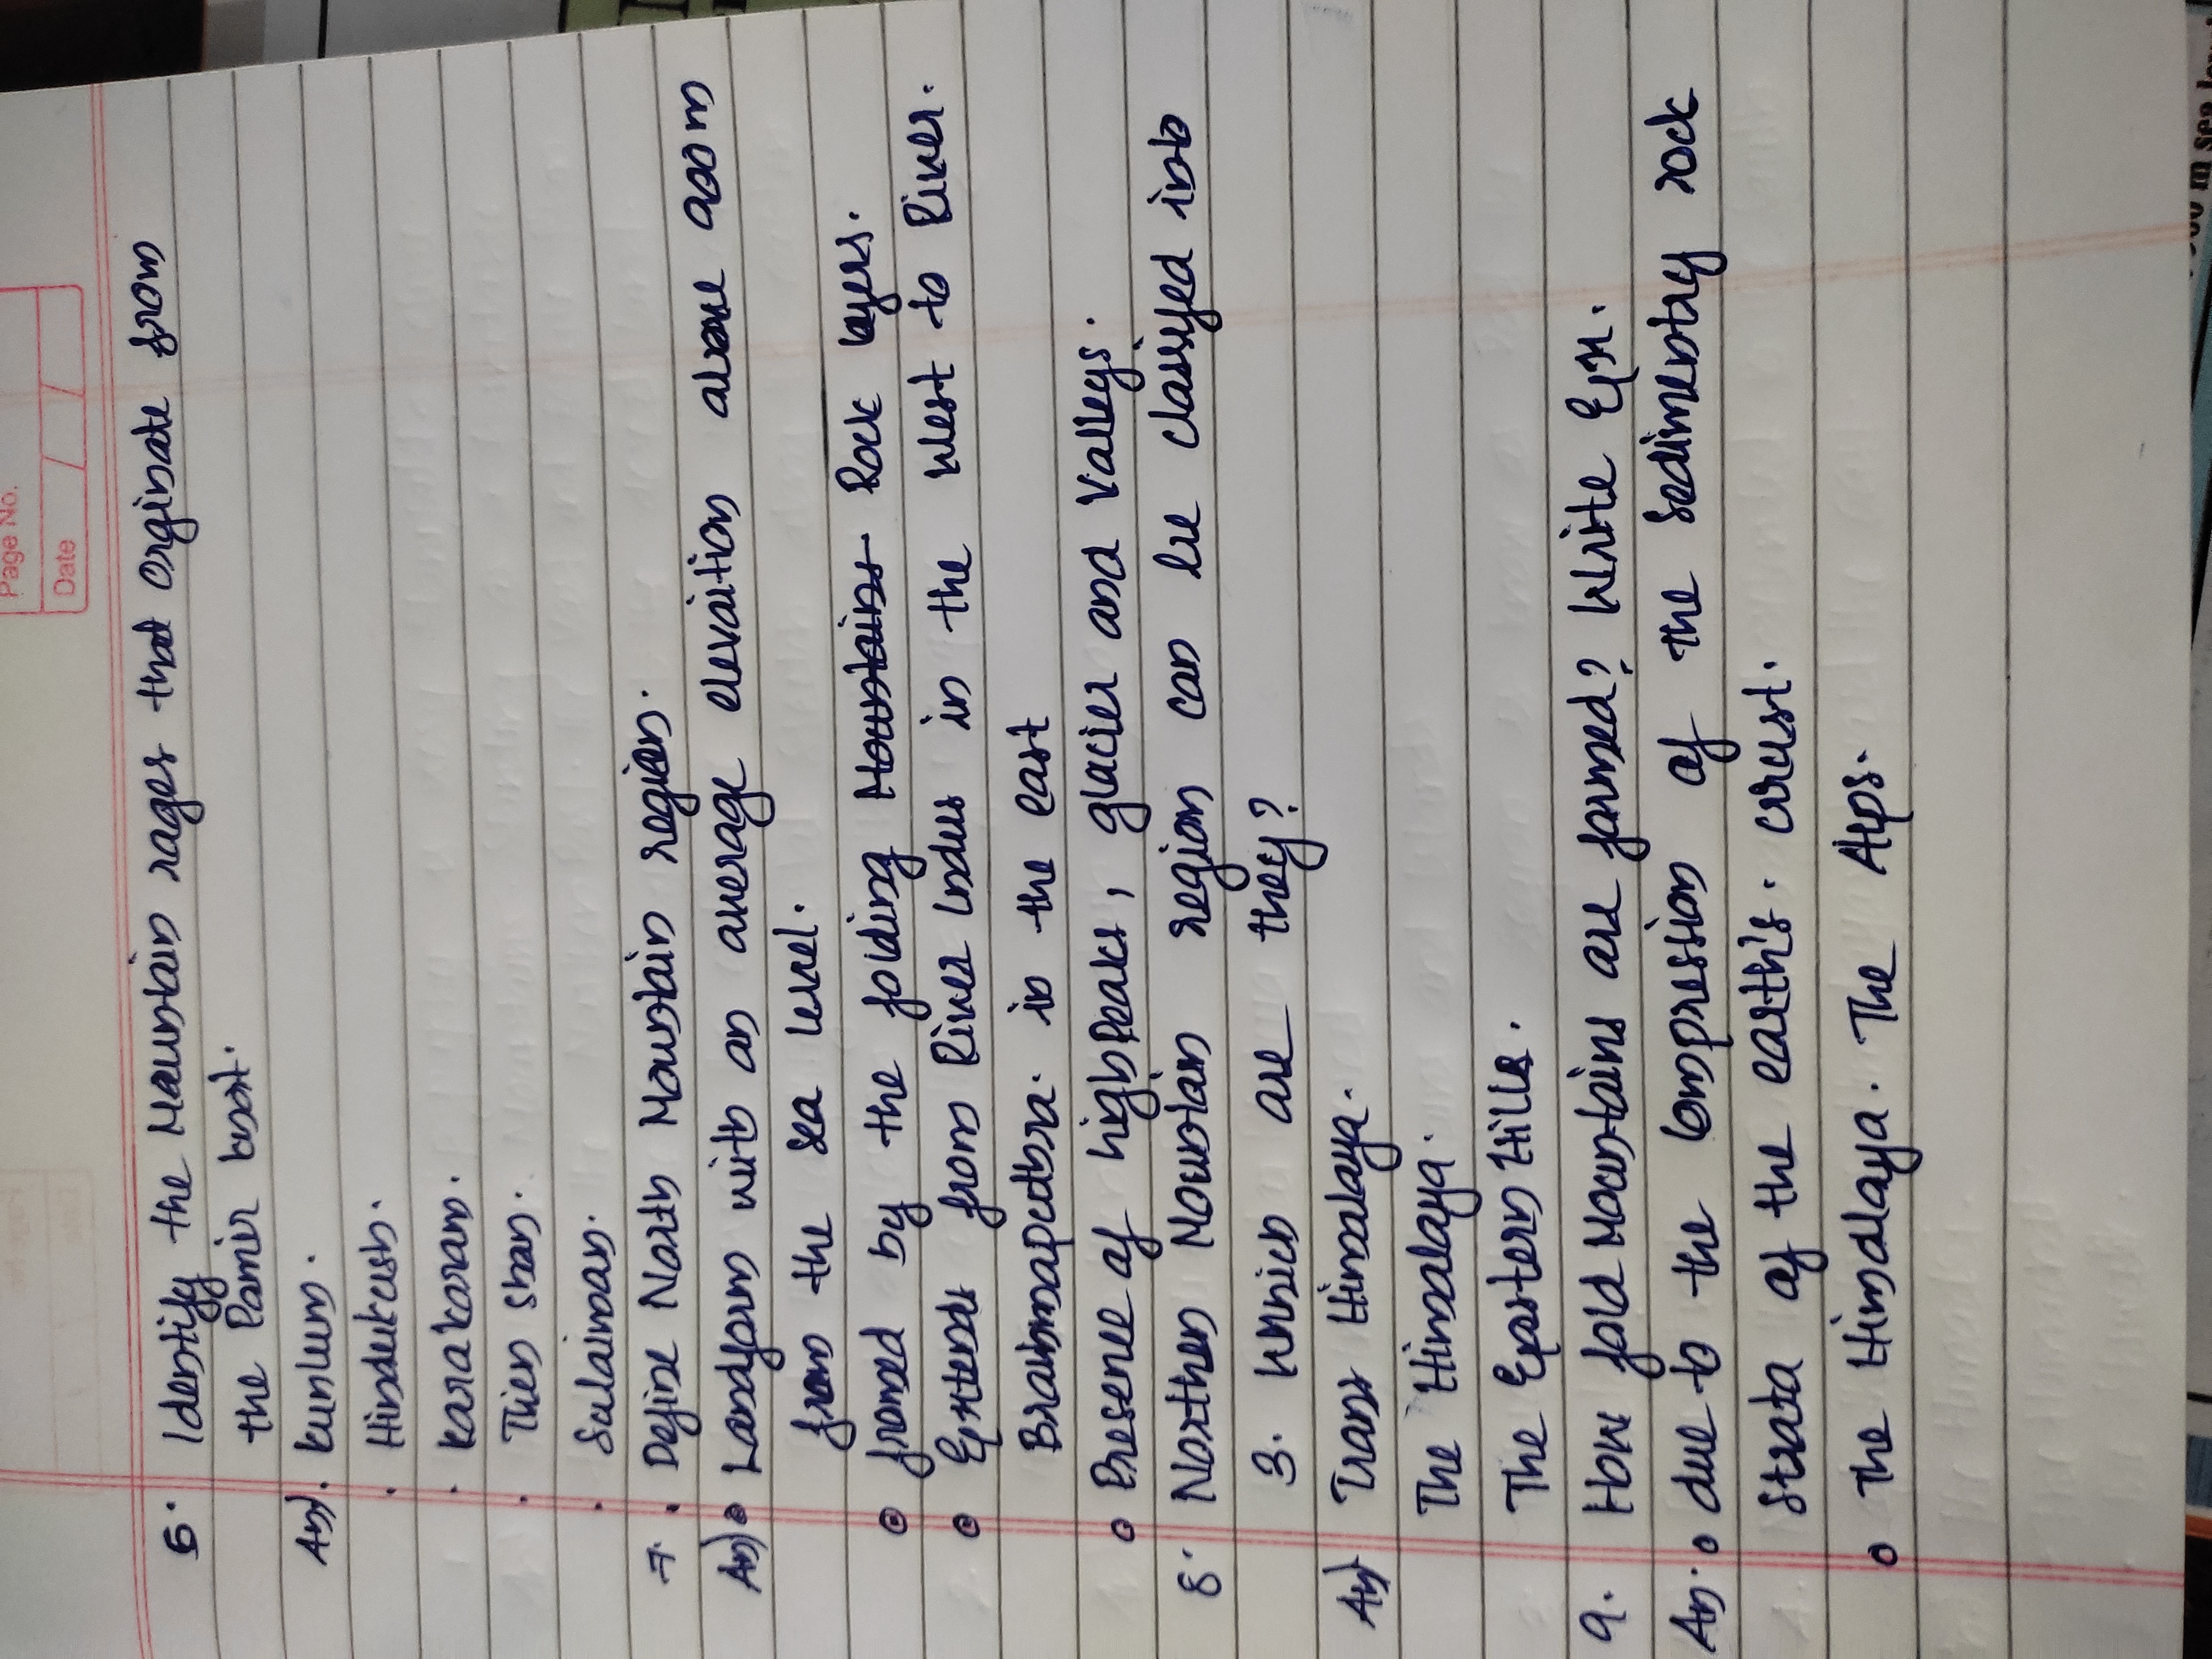 Page No.
Date / /
5. Identify the Mountain rages that orginate from
the Pamir knot.
An) . Kunlum.
. Hindukush.
. Karakoram.
. Tien shan.
. Sulaiman.
7. . Define North Mountain region.
An) Landform with an average elevaition above 900m
from the sea level.
fromed by the folding Mountains Rock layers.
Extends from River Indus in the west to River.
Brahmaputra. in the east
Presene of high Peaks, glacier and Valleys.
8. Northen Mountain region can be classyed into
3. Which are they?
An) Trans Himalaya.
The Himalaya.
The Eastern Hills.
9. How fold Mountains are formed? Write Eg.
An. due to the Compression of the sedimentry rock
Strata of the earth's. crust.
The Himalaya. The Alps.